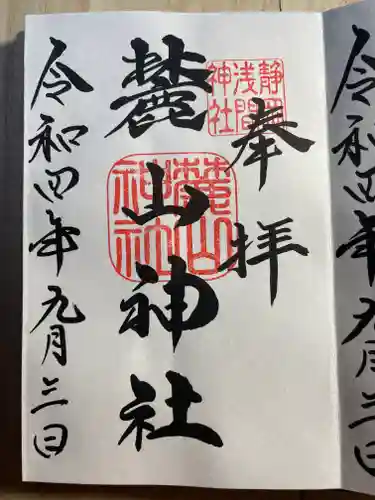 奉拝
静岡浅間神社
麓山神社
麓山神社
令和四年九月三日
令和四年九月三日